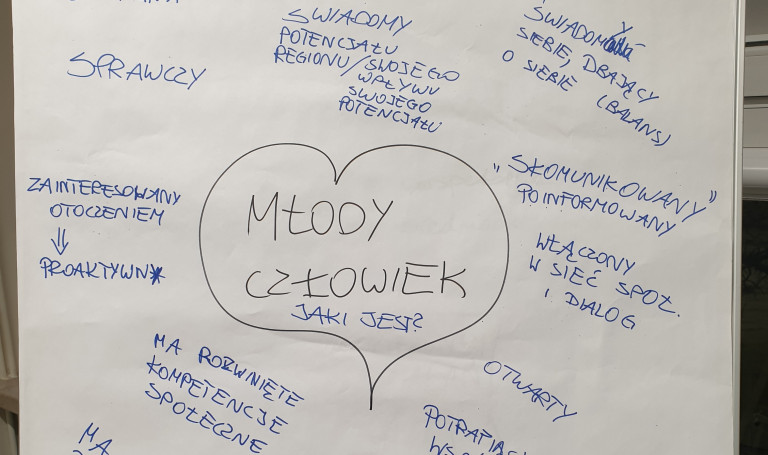 ŚWIADOMY
POTENCJAŁU
REGIONU/SWOJEGO
WPŁYWU
SWOJEGO
POTENCJAŁU
ŚWIADOMY
SIEBIE, DBAJĄCY
O SIEBIE (BALANS)
SPRAWCZY
"SKOMUNIKOWANY"
POINFORMOWANY
ZAINTERESOWANY
OTOCZENIEM
⇓
PROAKTYWNY
WŁĄCZONY
W SIEĆ SPOŁ.
I DIALOG
MŁODY
CZŁOWIEK
JAKI JEST?
MA ROZWNIĘTE
KOMPETENCJE
SPOŁECZNE
OTWARTY
MA